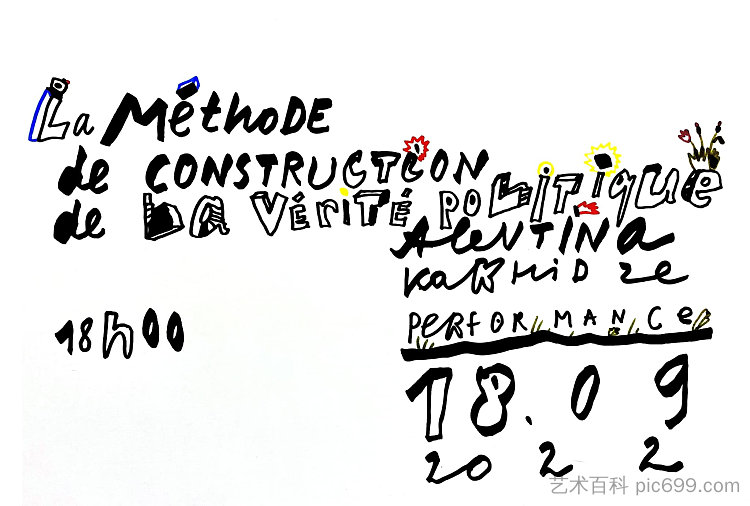 La MéthoDE
de CONSTRUCTION
de La VéRiTÉ poLiTique
AleVTINa
KaKHiDze
PERFORMANCe
18h00
18.09
2022
艺术百科 pic699.com